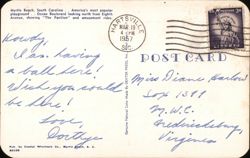 Myrtle Beach, South Carolina - America's most popular
playground - Ocean Boulevard looking north from Eighth
Avenue, showing "The Pavilion" and amusement rides.
HARTSVILLE
MAR 19
4 PM
1957
S.C.
POST CARD
Howdy
I am having
a ball here!
Wish you could
be here!
Love,
Dorthye
Miss Diane Harlow
Box 1588
M.W.C.
Fredericksburg,
Virginia